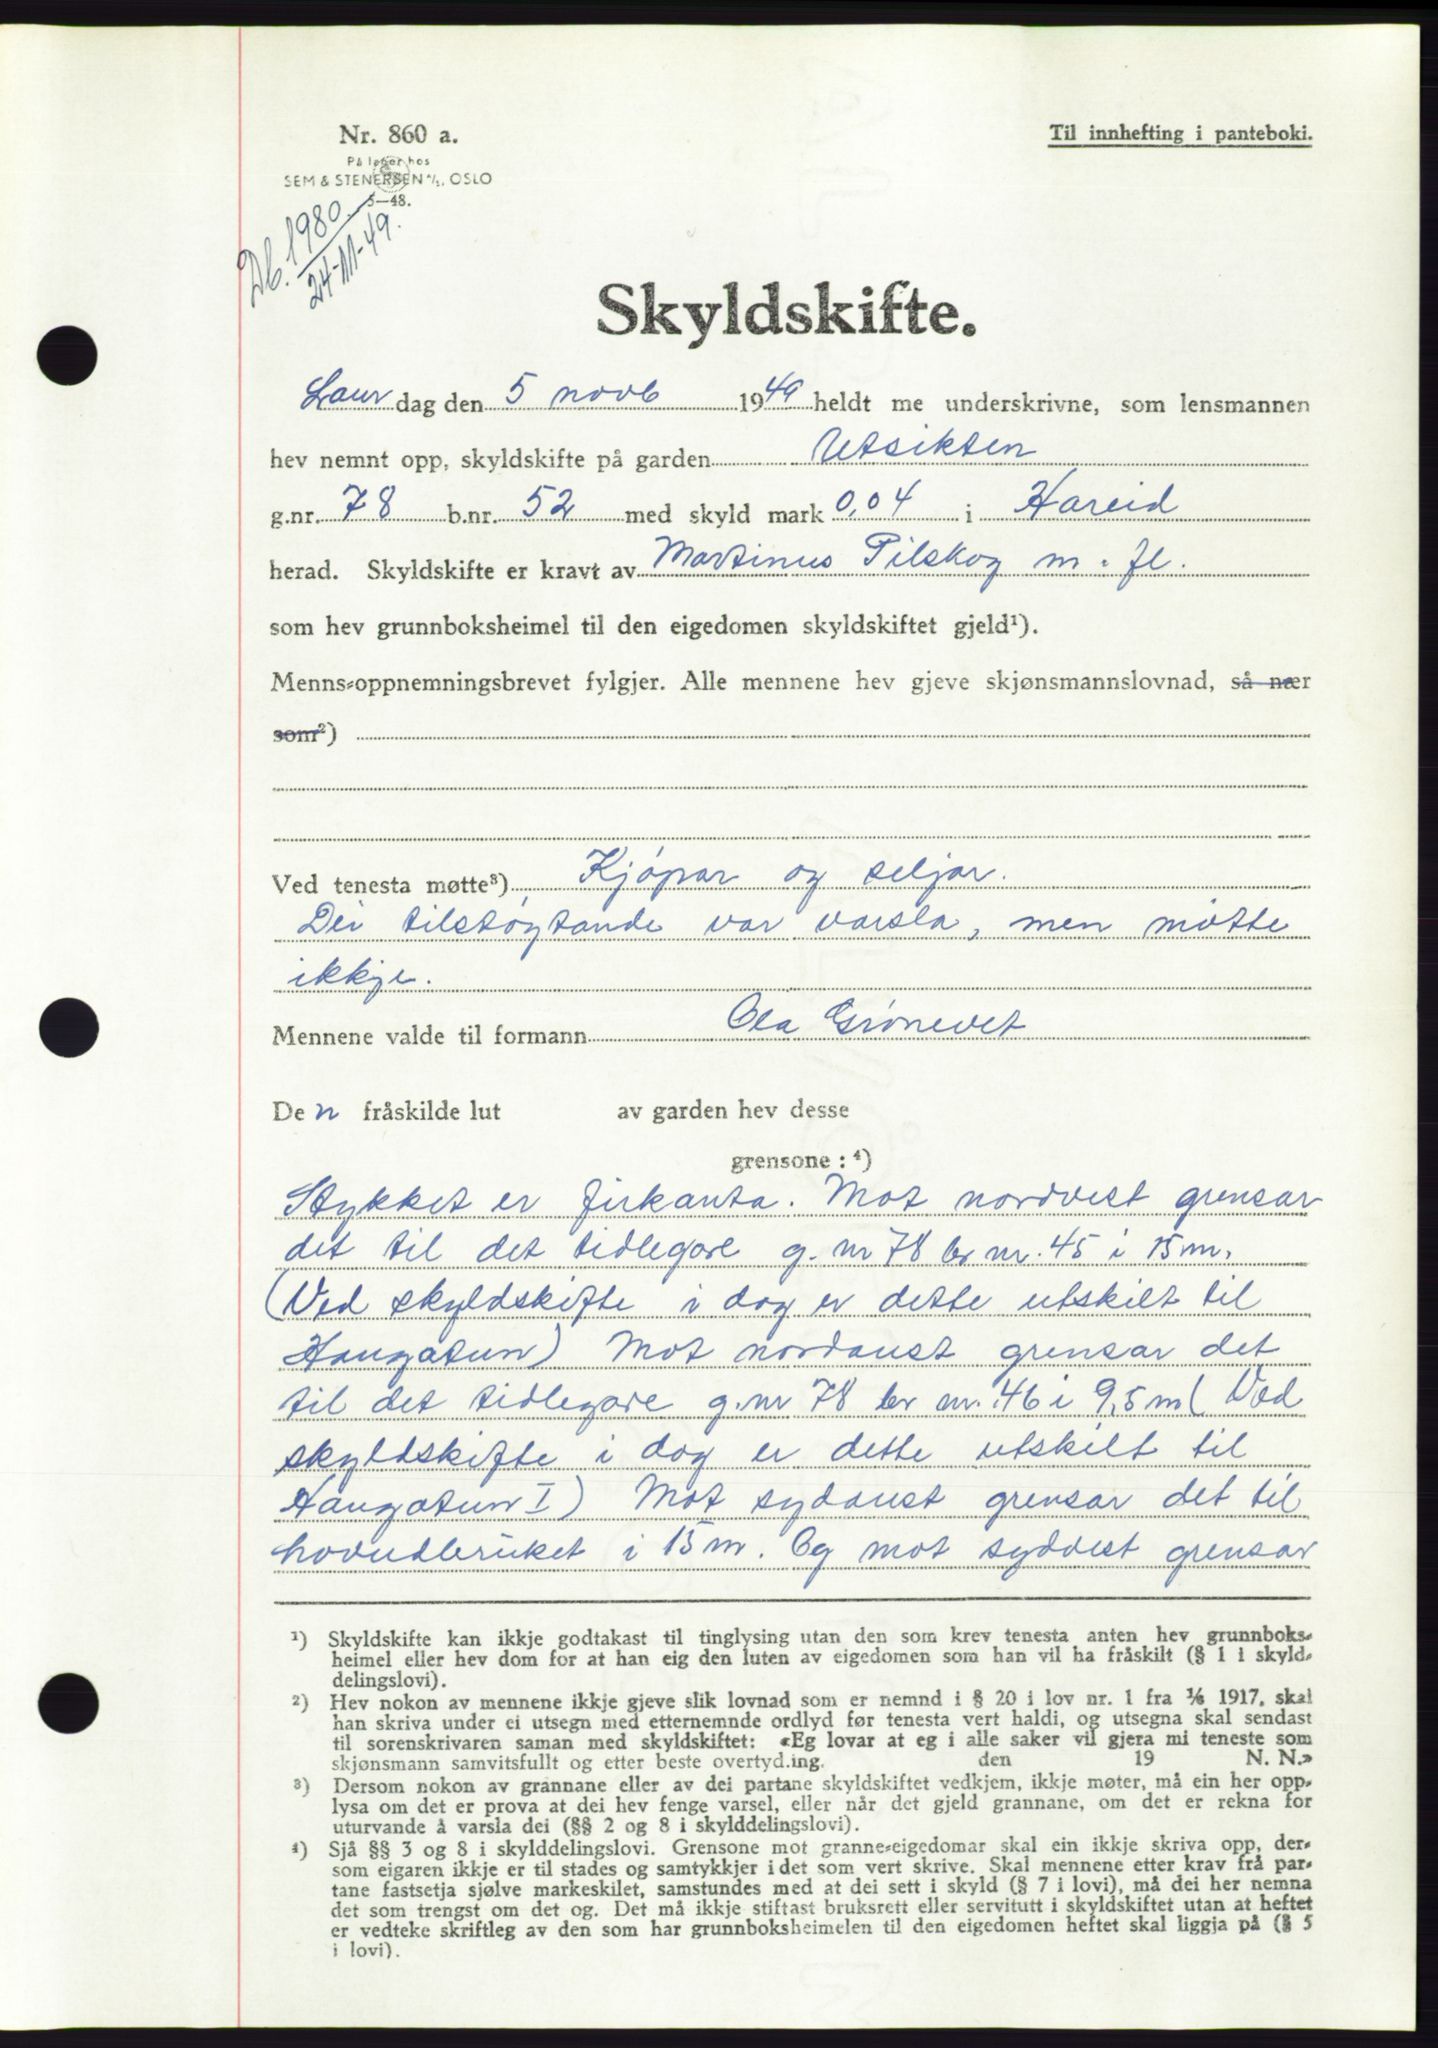 Nr. 860 a.
Til innhefting i panteboki.
På lager hos
SEM & STENERSEN A/S, OSLO
5—48.
Db. 1980
24-11-49.
Skyldskifte.
Laur dag den 5 novb 1949 heldt me underskrivne, som lensmannen
hev nemnt opp, skyldskifte på garden Utsikten
g.nr. 78 b.nr. 52 med skyld mark 0,04 i Hareid
herad. Skyldskifte er kravt av Martinus Pilskog m. fl.
som hev grunnboksheimel til den eigedomen skyldskiftet gjeld¹).
Menns-oppnemningsbrevet fylgjer. Alle mennene hev gjeve skjønsmannslovnad, så nær
som²)
Ved tenesta møtte³) Kjøpar og seljar.
Dei tilstøytande var varsla, men møtte
ikkje.
Mennene valde til formann Ola Grönevet
Den fråskilde lut av garden hev desse
grensone : ⁴)
Stykket er firkanta. Mot nordvest grensar
det til det tidlegare g. nr 78 br nr. 45 i 15 m.
(Ved skyldskifte i dag er dette utskilt til
Haugatun) Mot nordaust grensar det
til det tidlegare g.nr 78 br nr. 46 i 9,5 m (Ved
skyldskifte i dag er dette utskilt til
Haugatun I) Mot sydaust grensar det til
hovudbruket i 15 m. Og mot sydvest grensar
¹) Skyldskifte kan ikkje godtakast til tinglysing utan den som krev tenesta anten hev grunnboks-
heimel eller hev dom for at han eig den luten av eigedomen som han vil ha fråskilt (§ 1 i skyld-
delingslovi).
²) Hev nokon av mennene ikkje gjeve slik lovnad som er nemnd i § 20 i lov nr. 1 fra 1/6 1917, skal
han skriva under ei utsegn med etternemnde ordlyd før tenesta vert haldi, og utsegna skal sendast
til sorenskrivaren saman med skyldskiftet: «Eg lovar at eg i alle saker vil gjera mi teneste som
skjønsmann samvitsfullt og etter beste overtyd.ing. den 19 N. N.»
³) Dersom nokon av grannane eller av dei partane skyldskiftet vedkjem, ikkje møter, må ein her opp-
lysa om det er prova at dei hev fenge varsel, eller når det gjeld grannane, om det er rekna for
uturvande å varsla dei (§§ 2 og 8 i skylddelingslovi).
⁴) Sjå §§ 3 og 8 i skylddelingslovi. Grensone mot granne-eigedomar skal ein ikkje skriva opp, der-
som eigaren ikkje er til stades og samtykkjer i det som vert skrive. Skal mennene etter krav frå par-
tane fastsetja sjølve markeskilet, samstundes med at dei sett i skyld (§ 7 i lovi), må dei her nemna
det som trengst om det og. Det må ikkje stiftast bruksrett eller servitutt i skyldskiftet utan at heftet
er vedteke skriftleg av den som har grunnboksheimelen til den eigedomen heftet skal liggja på (§ 5
i lovi).